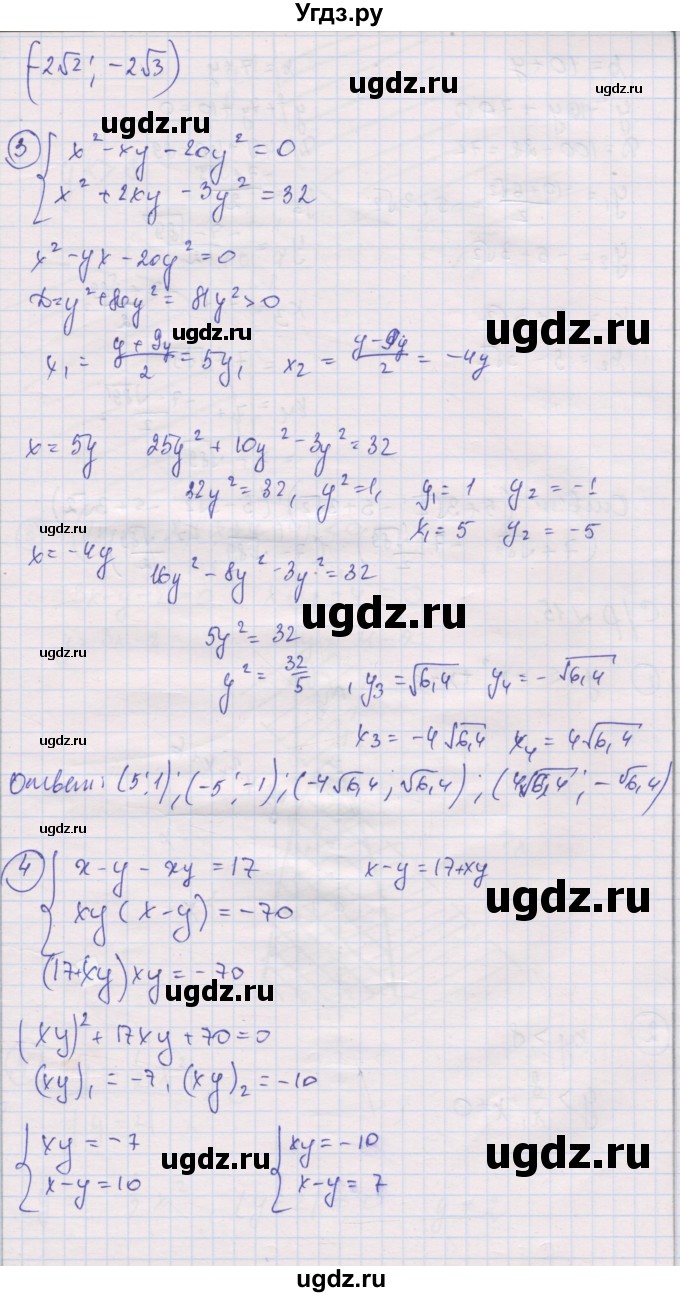 Угдз.ру
(-2√2; -2√3)
ugdz.ru
ugdz.ru
③ { x² - xy - 20y² = 0
x² + 2xy - 3y² = 32
ugdz.ru
x² - yx - 20y² = 0
D = y² + 80y² = 81y² > 0
ugdz.ru
ugdz.ru
x₁ = (y + 9y)/2 = 5y, x₂ = (y - 9y)/2 = -4y
x = 5y 25y² + 10y² - 3y² = 32
32y² = 32, y² = 1, y₁ = 1 y₂ = -1
x₁ = 5 y₂ = -5
ugdz.ru
x = -4y 16y² - 8y² - 3y² = 32
ugdz.ru
5y² = 32
ugdz.ru
y² = 32/5, y₃ = √6,4 y₄ = -√6,4
x₃ = -4√6,4 x₄ = 4√6,4
ugdz.ru
Ответ: (5; 1); (-5; -1); (-4√6,4; √6,4); (4√6,4; -√6,4)
ugdz.ru
④ { x - y - xy = 17 x - y = 17 + xy
xy (x - y) = -70
ugdz.ru
(17 + xy) xy = -70
ugdz.ru
(xy)² + 17xy + 70 = 0
(xy)₁ = -7, (xy)₂ = -10
{ xy = -7 { xy = -10
x - y = 10 x - y = 7
ugdz.ru
ugdz.ru
ugdz.ru